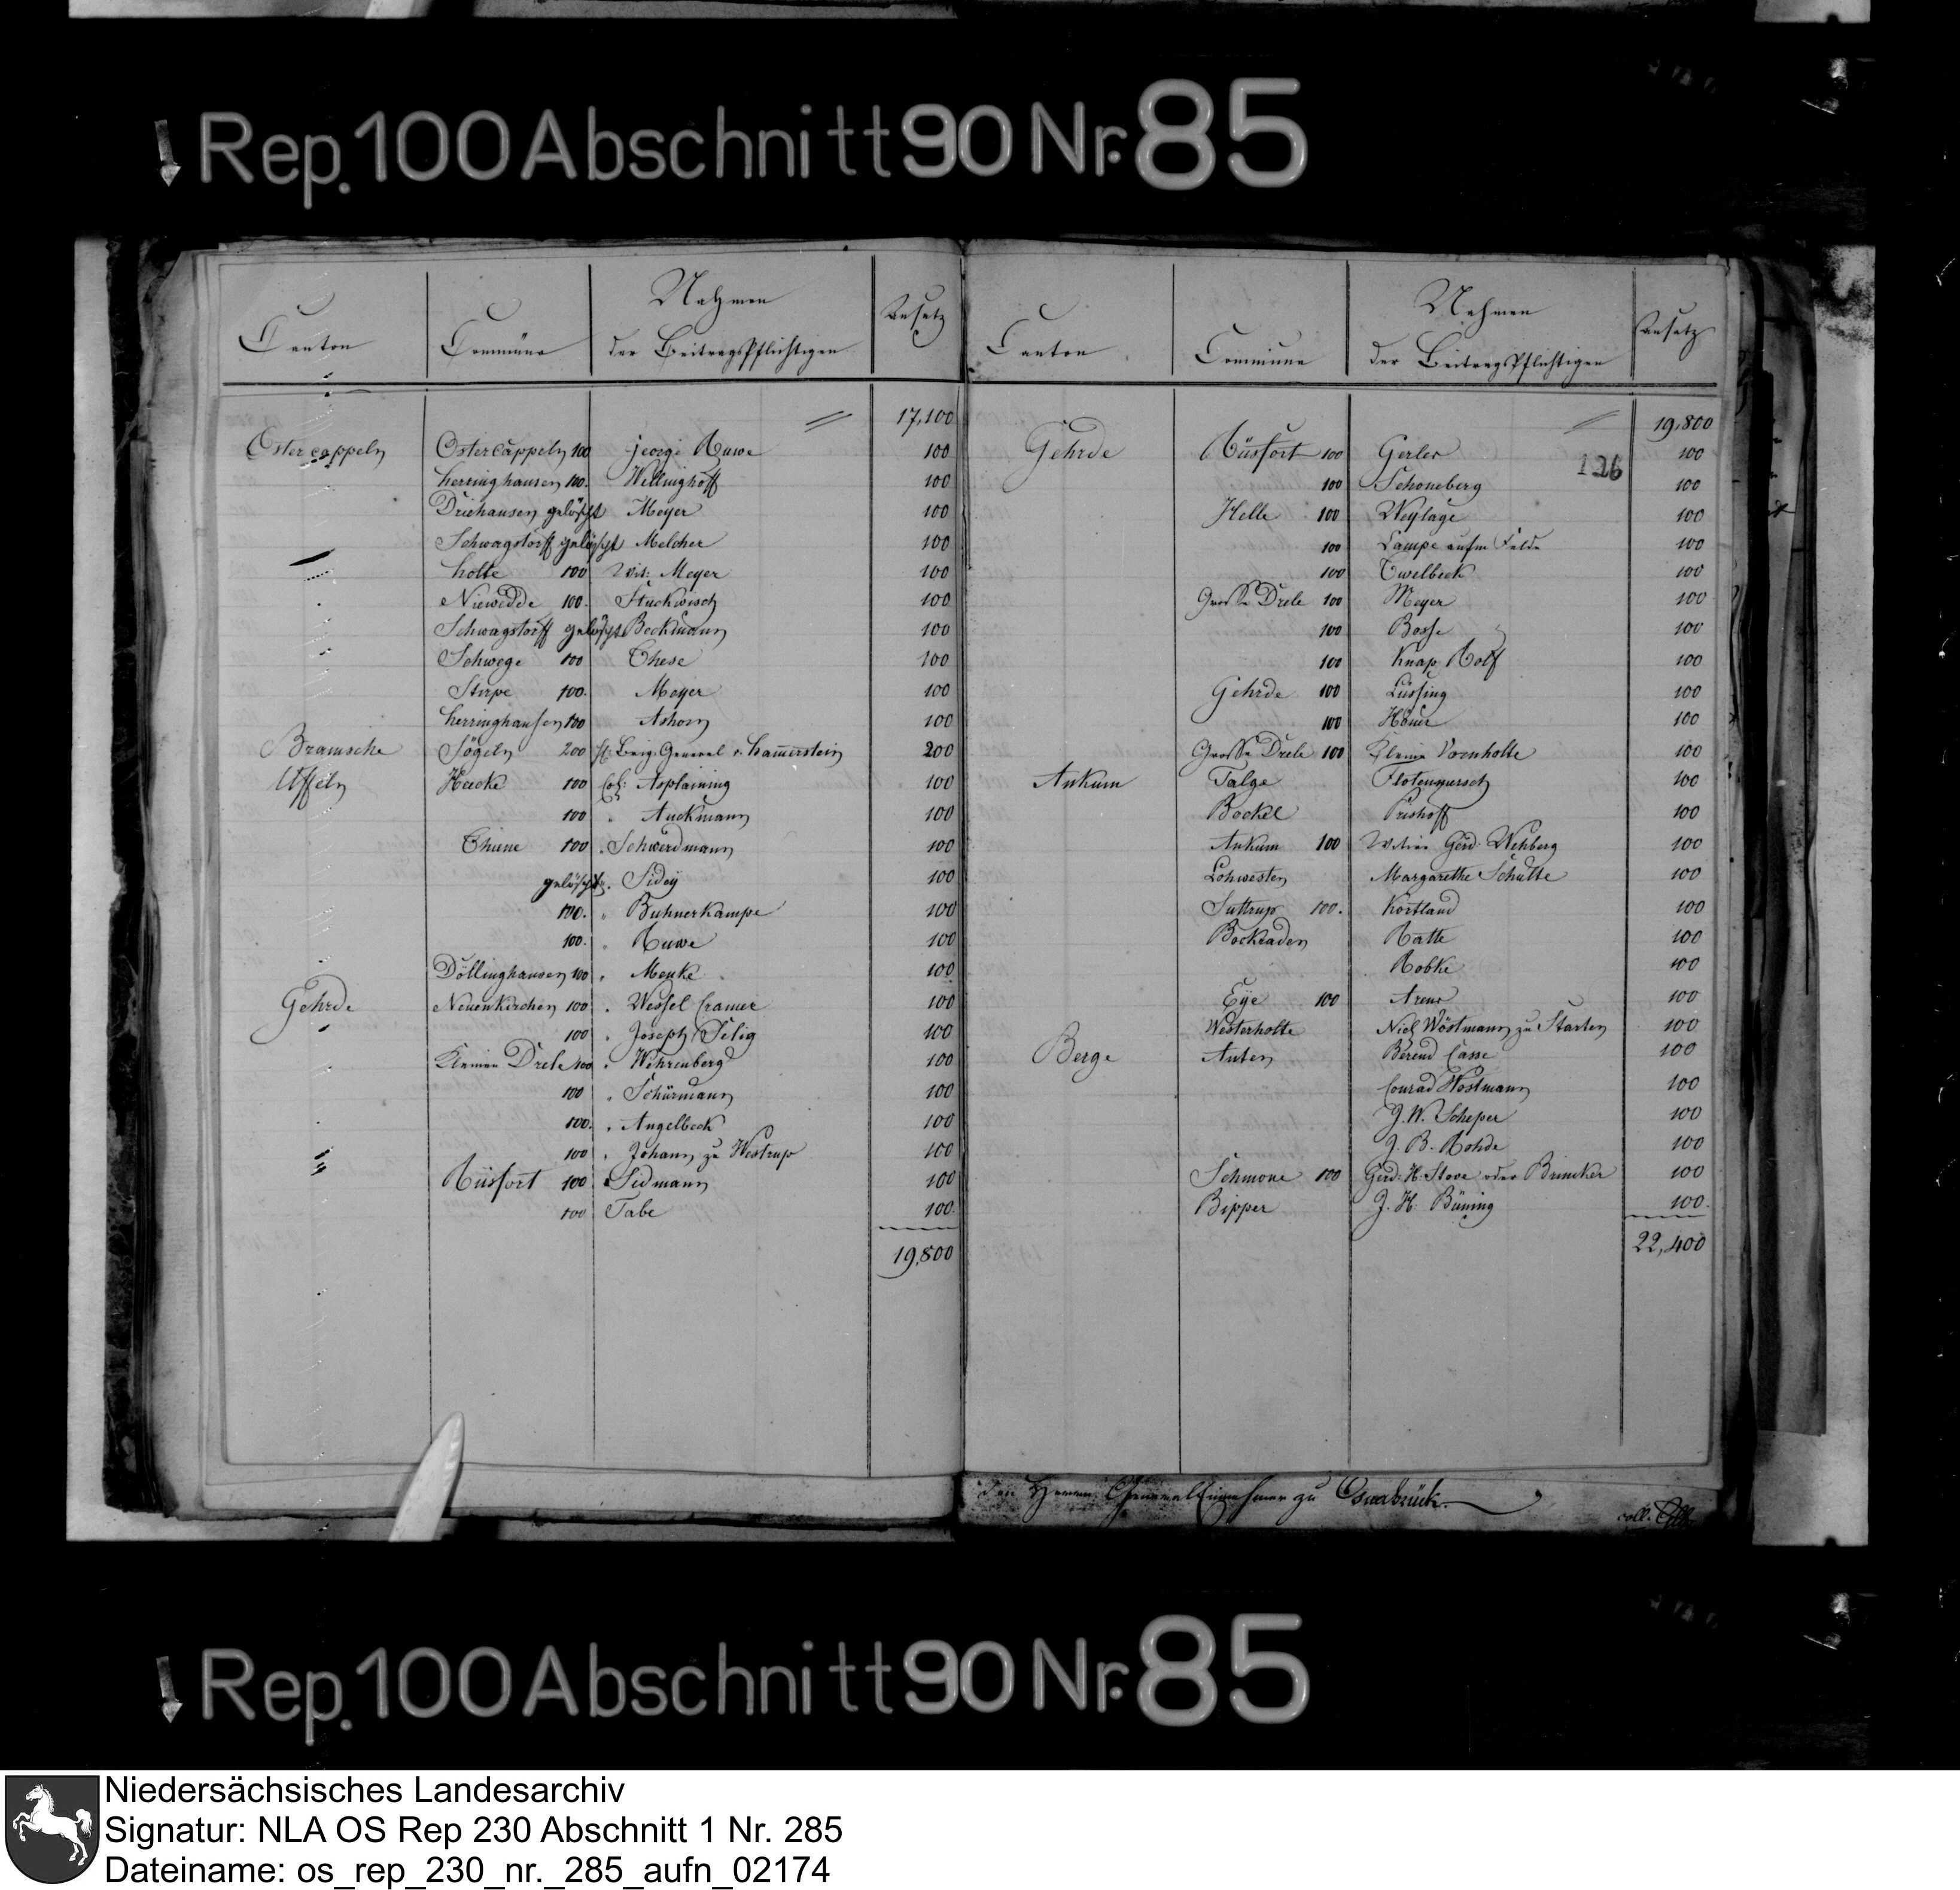 Rep. 100 Abschnitt 90 Nr. 85
Canton Commüne Nahmen der Beitragspflichtigen Ansatz
17,100
Ostercappeln Ostercappeln 100 Georg Ruwe 100
Herringhausen 100. Wellinghoff 100
Driehausen gelöscht Meyer 100
Schwagstorff gelöscht Melcher 100
Holte 100 Wit: Meyer 100
Niewedde 100. Stuckwisch 100
Schwagstorff gelöscht Beckmann 100
Schwege 100 These 100
Stirpe 100. Meyer 100
Herringhausen 100 Ashorn 100
Bramsche Sögeln 200 H. Brig. General v. Hammerstein 200
Uffeln Heeke 100 Col: Asplaining 100
100 " Auckmann 100
Thiene 100 " Schwerdmann 100
gelöscht " Sidey 100
100. " Buhnerkampe 100
100. " Ruwe 100
Döllinghausen 100 " Menke 100
Gehrde Neuenkirchen 100 " Wessel Cramer 100
100 " Joseph Selig 100
Kleine Drele 100 " Wehrenberg 100
100 " Schürmann 100
100. " Angelbeck 100
100 " Johann zu Westrup 100
Rüsfort 100 " Sidmann 100
100 Tabe 100.
19,800
Canton Commüne Nahmen der Beitragspflichtigen Ansatz
19,800
Gehrde Rüsfort 100 Gerler 100
126
100 Schoneberg 100
Helle 100 Weylage 100
100 Lampe aufm Felde 100
100 Twelbeck 100
Grosse Drele 100 Meyer 100
100 Bosse 100
100 Knap Rolf 100
Gehrde 100 Lüssing 100
100 Häuer 100
Grosse Drele 100 Kleine Vornholte 100
Ankum Talge Flotemersch 100
Bockel Prishoff 100
Ankum 100 Witwe Gerd Wehberg 100
Lohwesten Margarethe Schutte 100
Suttrup 100. Kortland 100
Bockraden Ratte 100
Robke 100
Eye 100 Arens 100
Westerholte Nicl. Wöstmann zu Starten 100
Berge Anten Berend Casse 100
Conrad Wostmann 100
J. W. Scheper 100
J. B. Rohde 100
Schmone 100 Gerd. H. Stove oder Brincker 100
Bipper J. H. Büning 100.
22,400
den Herrn General Einnehmer zu Osnabrück.
coll.
Rep. 100 Abschnitt 90 Nr. 85
Niedersächsisches Landesarchiv
Signatur: NLA OS Rep 230 Abschnitt 1 Nr. 285
Dateiname: os_rep_230_nr._285_aufn_02174